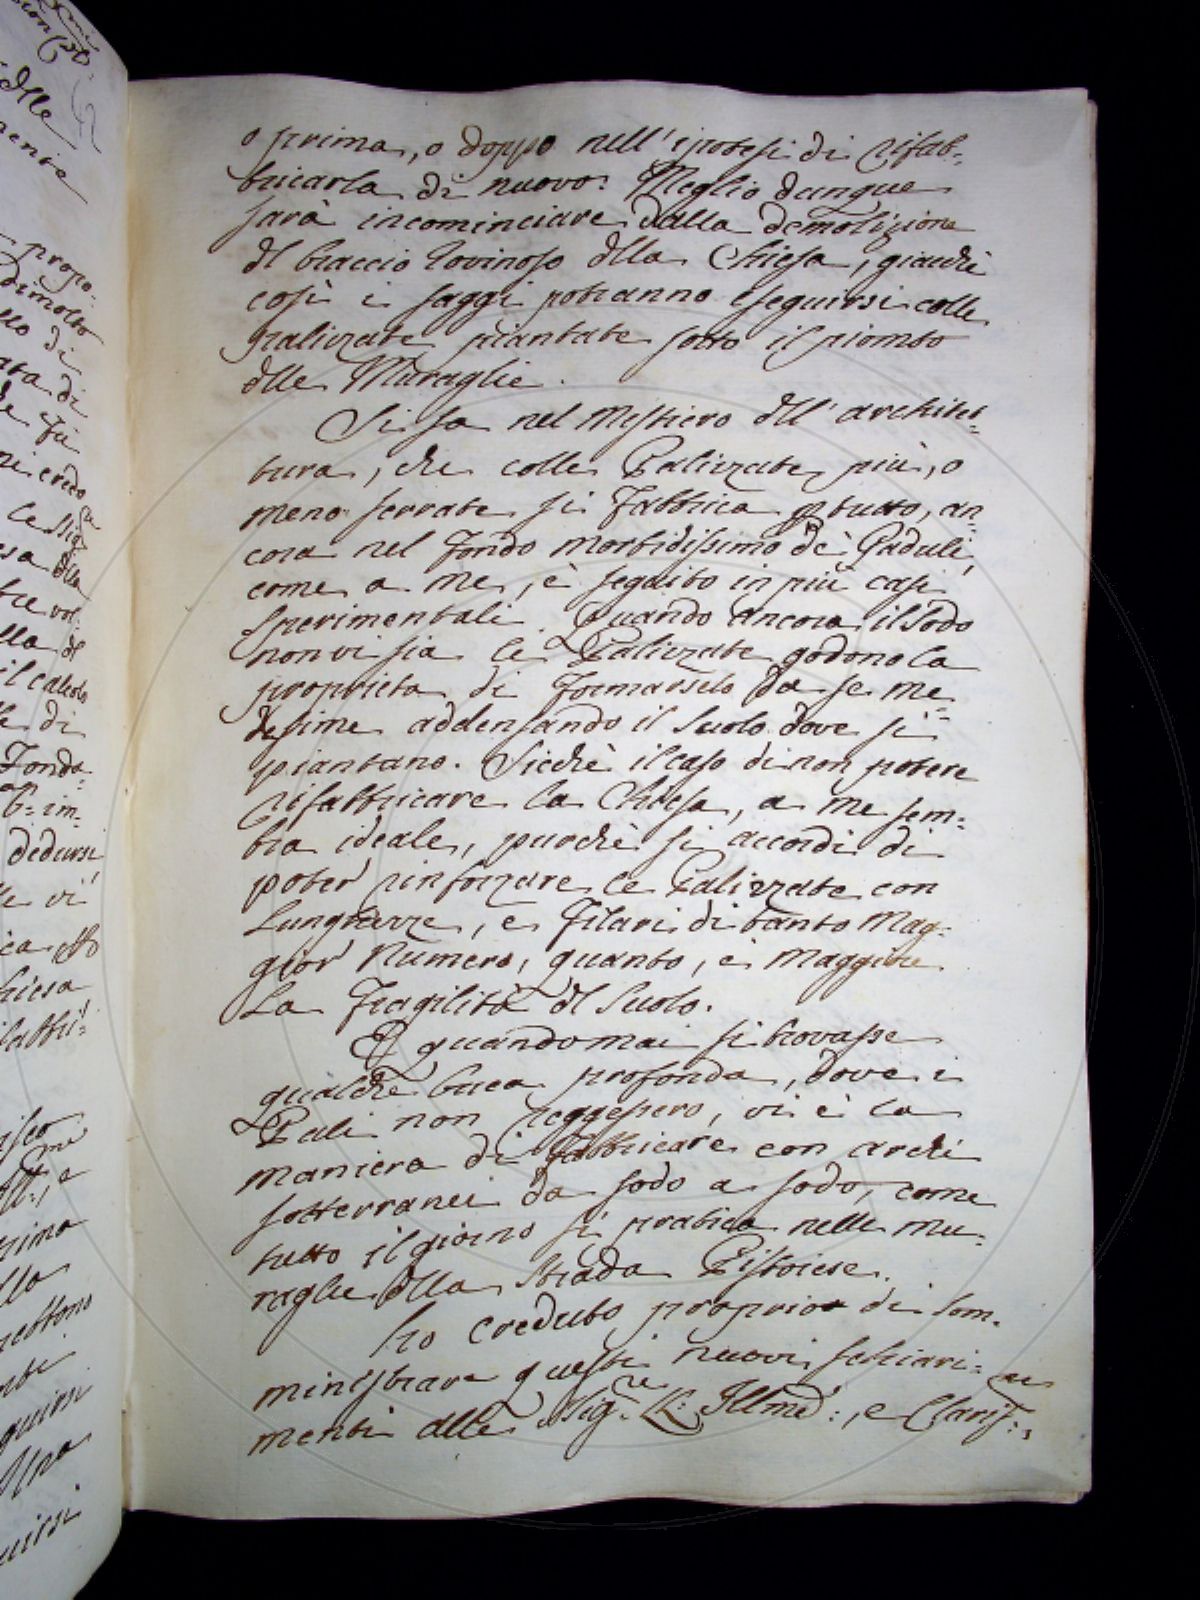 o prima, o doppo nell'ipotesi di rifab=
bricarla di nuovo: Meglio dunque
sarà incominciare dalla demolizione
dl braccio rovinoso dlla Chiesa, giacchè
così i saggi potranno eseguirsi colle
palizzate piantate sotto il piombo
dlle Muraglie.
Si sa nel Mestiero dll'architet=
tura, che colle Palizzate più, o
meno serrate si Fabbrica p tutto, an=
cora nel Fondo morbidissimo de' Paduli,
come a me, è seguito in più casi
sperimentali. Quando ancora il sodo
non vi sia le Palizzate godono la
proprietà di Formarselo da se me=
desime addensando il suolo dove si
piantano. Sicchè il caso di non potere
rifabbricare la Chiesa, a me sem=
bra ideale, purchè si accordi di
poter rinforzare le Palizzate con
Lunghezze, e Filari di tanto Mag=
gior Numero, quanto, è maggiore
La Fragilità dl suolo.
E quando mai si trovasse
qualche buca profonda, dove i
Pali non reggessero, vi è la
maniera di Fabbricare con archi
sotterranei da sodo a sodo, come
tutto il giorno si pratica nelle mu=
raglie dlla Strada Pistoiese.
Ho creduto proprio di som=
ministrare questi nuovi schiari=
menti alle Sig:re LL: Illme:, e Clariss:me,